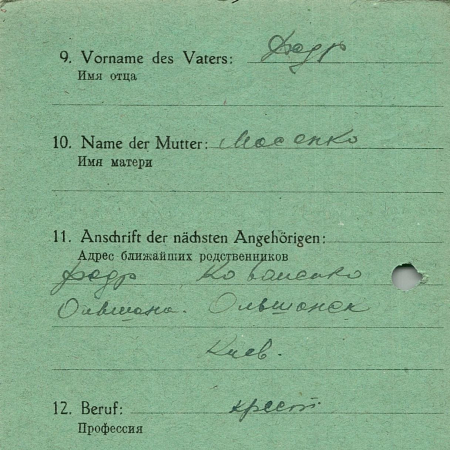 9. Vorname des Vaters: Федр
Имя отца
10. Name der Mutter: Мосенко
Имя матери
11. Anschrift der nächsten Angehörigen:
Адрес ближайших родственников
Федр Коваленко
Ольшана. Ольшанск
Киев.
12. Beruf: крест
Профессия